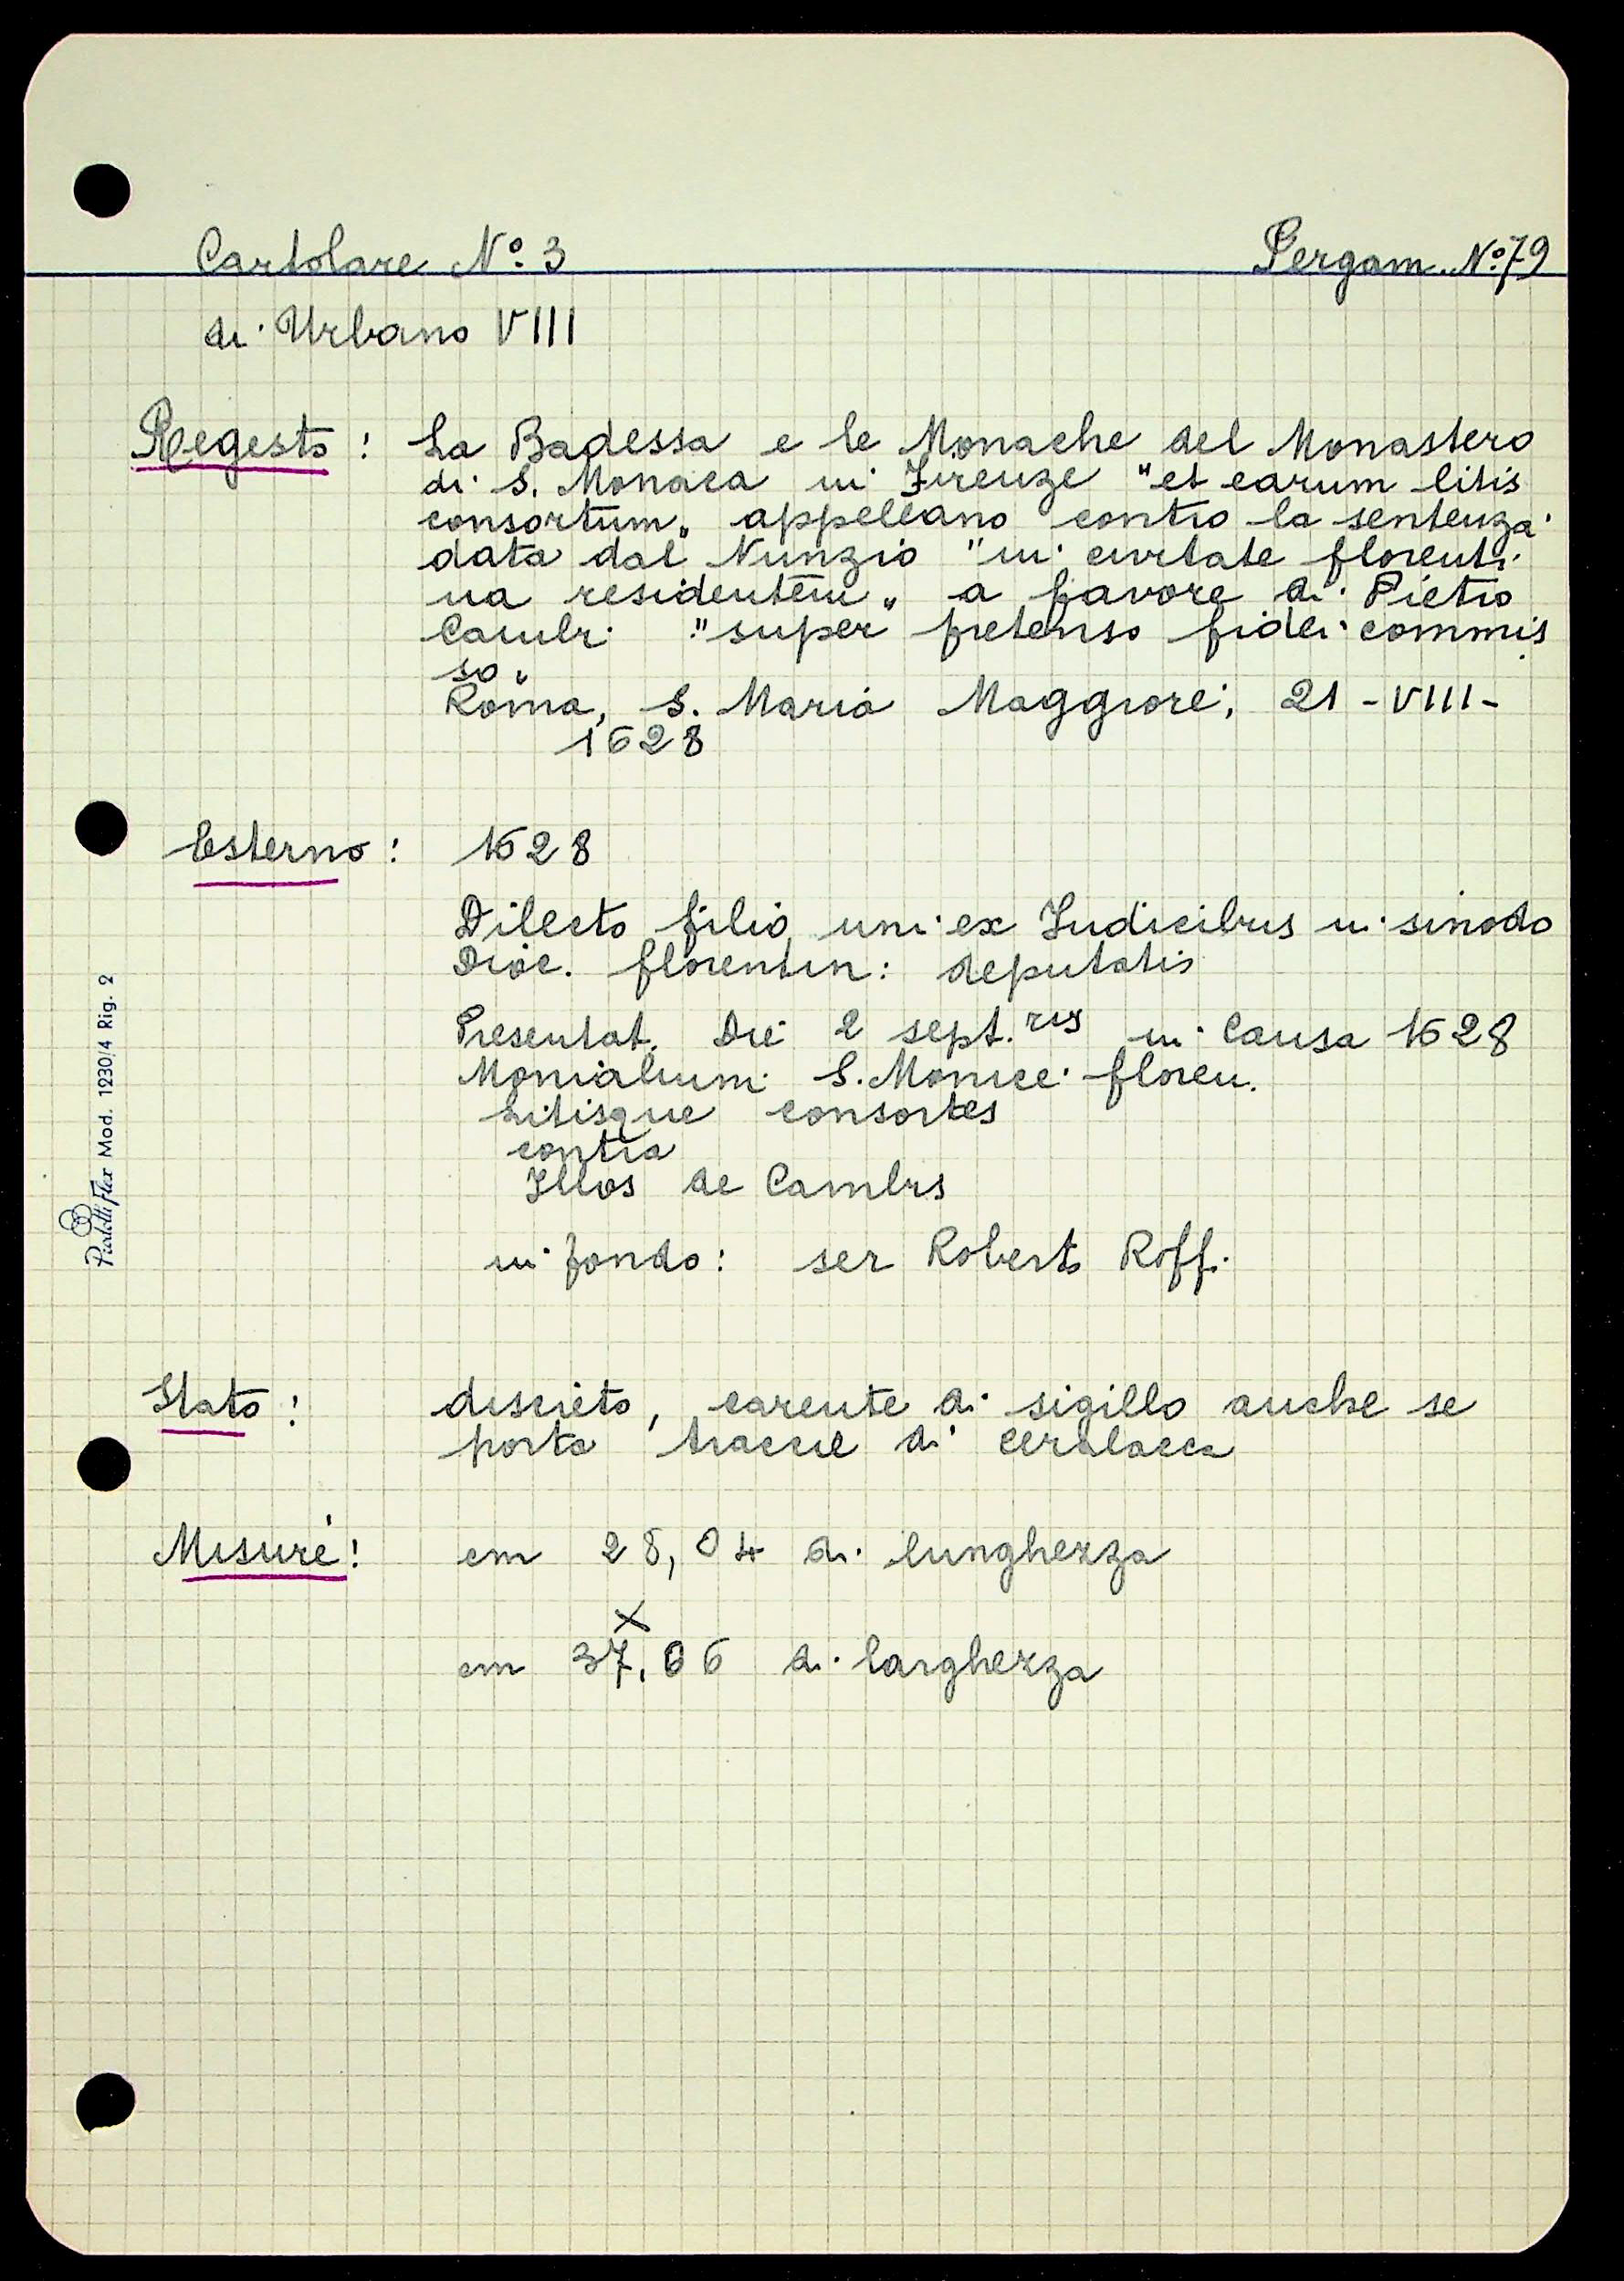 Cartolare N° 3
Pergam. N° 79
di Urbano VIII
Regesto: La Badessa e le Monache del Monastero
di S. Monaca in Firenze "et earum litis
consortum" appellano contro la sentenza
data dal Nunzio "in civitate florenti
na residentem" a favore di Pietro
"super pretenso fidei commis
so"
Roma, S. Maria Maggiore, 21 - VIII -
1628
Esterno: 1628
Dilecto filio uni ex Iudicibus in sinodo
Dioc. florentin: deputatis
Presentat. Die 2 sept.res in causa 1628
Monialium S. Monice floren.
Litisque consortes
contra
Illos de Cambis
in fondo: ser Roberto Roffi
Stato: discreto, carente di sigillo anche se
porta traccie di ceralacca
Misure: cm 28,04 di lunghezza
x
cm 37,06 di larghezza
Mod. 1230/4 Rig. 2